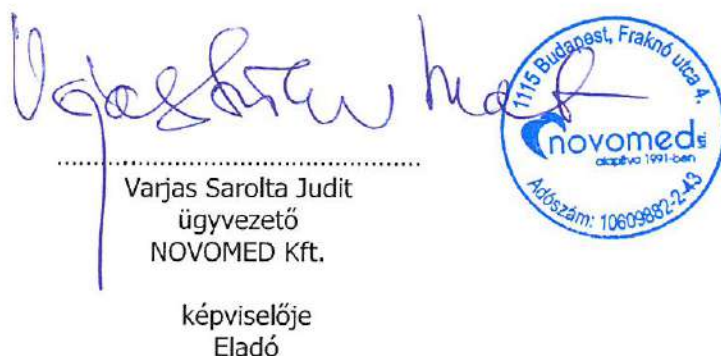 1115 Budapest, Fraknó utca 4.
novomed kft.
alapítva 1991-ben
Adószám: 10609882-2-43
Varjas Sarolta Judit
ügyvezető
NOVOMED Kft.
képviselője
Eladó